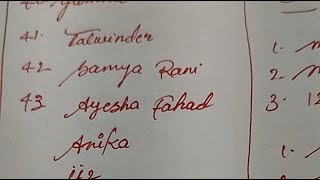 41. Talwinder
42. Samya Rani
43 Ayesha Fahad
Anika
1.
2.
3. 12